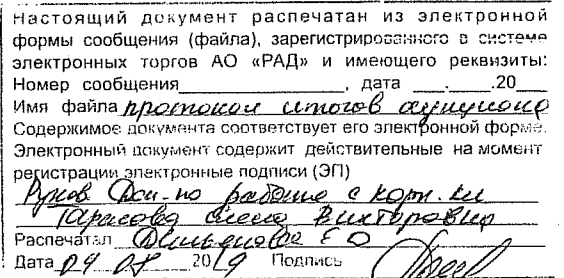 Настоящий документ распечатан из электронной
формы сообщения (файла), зарегистрированного в системе
электронных торгов АО «РАД» и имеющего реквизиты:
Номер сообщения____________, дата ___.___.20___
Имя файла протокол итогов аукциона
Содержимое документа соответствует его электронной форме.
Электронный документ содержит действительные на момент
регистрации электронные подписи (ЭП)
по работе с корп.
Тарасова Елена Викторовна
Распечатал
Дата 04 2019 Подпись